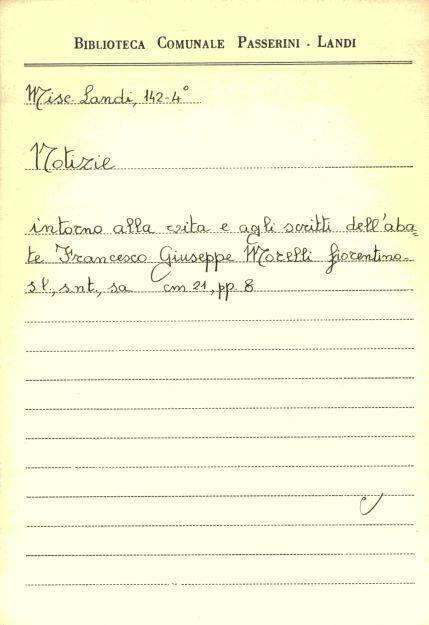 BIBLIOTECA COMUNALE PASSERINI - LANDI
Misc. Landi, 142-4°
Notizie
intorno alla vita e agli scritti dell'aba=
te Francesco Giuseppe Morelli fiorentino.
s.l., s.n.t., s.a. Cm 21, pp. 8